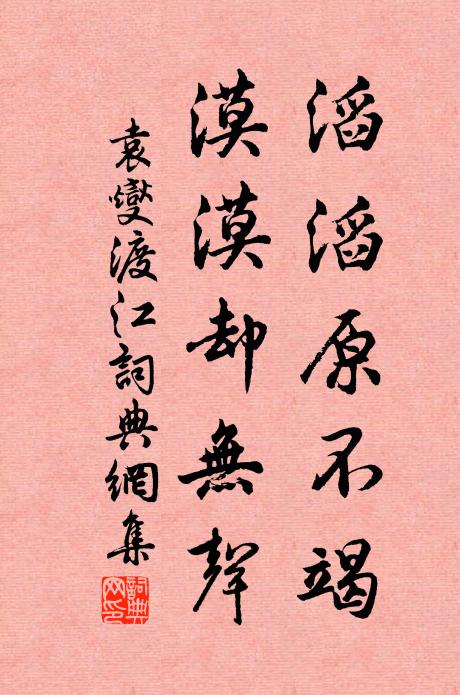 滔滔原不竭
漠漠却無聲
袁燮渡江詞典網集
詞典
网印